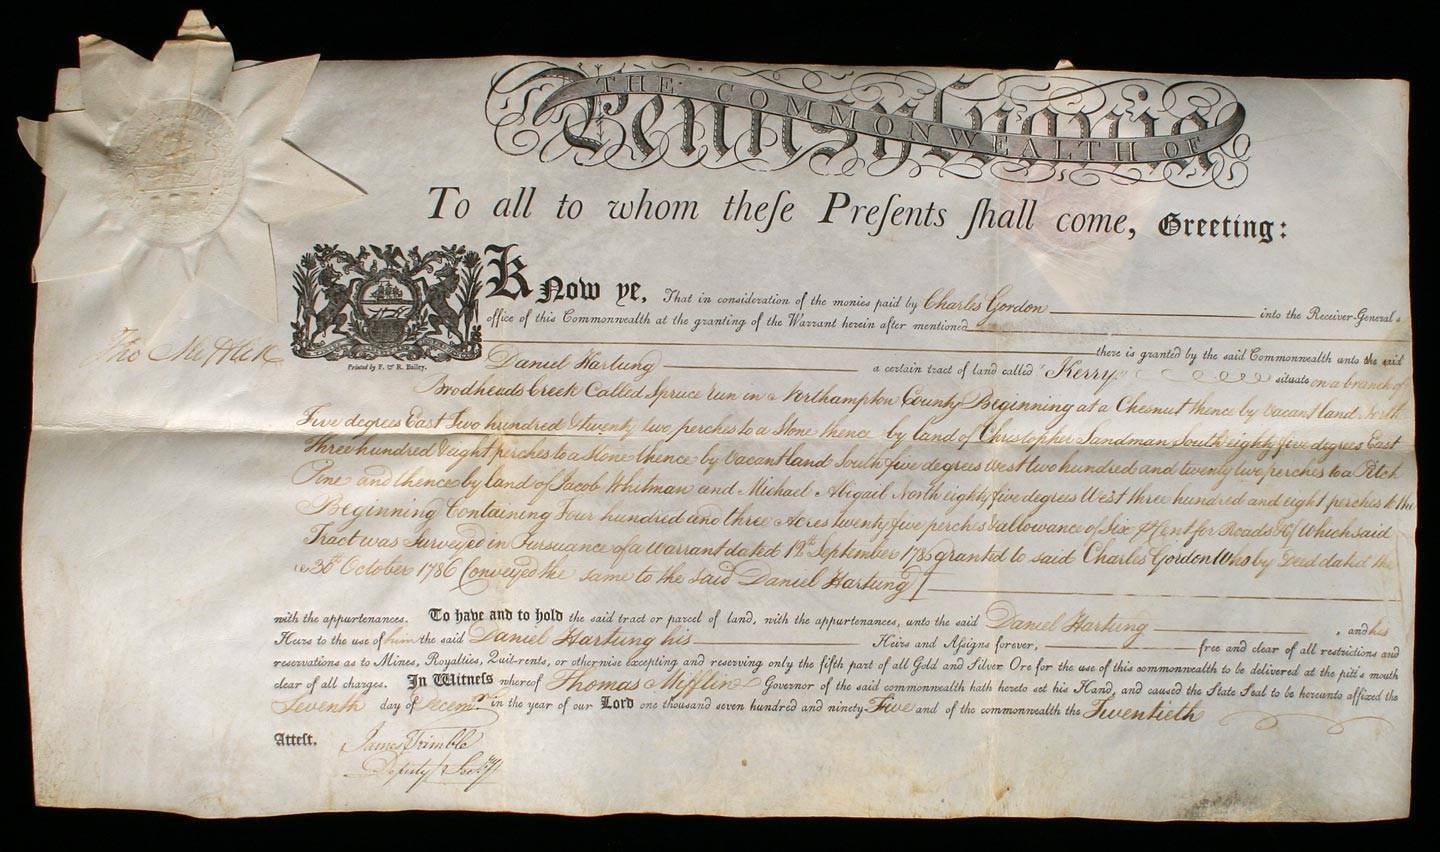 THE COMMONWEALTH OF
Pennsylvania
To all to whom theſe Preſents ſhall come, Greeting:
Know ye, That in consideration of the monies paid by Charles Gordon into the Receiver-General's
office of this Commonwealth at the granting of the Warrant herein after mentioned
there is granted by the said Commonwealth unto the said
Printed by F. & R. Bailey.
Tho Mifflin
Daniel Hartung a certain tract of land called "Kerry" situate on a branch of
Brodheads Creek Called Spruce run in Northampton County Beginning at a Chesnut thence by Vacant land North
Five degrees East Two hundred & twenty two perches to a Stone thence by land of Christopher Sandman South eighty five degrees East
Three hundred & eight perches to a Stone thence by Vacant land South five degrees West two hundred and twenty two perches to a Pitch
Pine and thence by land of Jacob Whitman and Michael Abigail North eighty five degrees West three hundred and eight perches to the
Beginning Containing Four hundred and three Acres twenty five perches & allowance of Six ⅌ Cent for Roads &c Which said
Tract was Surveyed in Pursuance of a Warrant dated 12th September 1786 granted to said Charles Gordon Who by Deed dated the
October 1786 Conveyed the same to the said Daniel Hartung
with the appurtenances. To have and to hold the said tract or parcel of land, with the appurtenances, unto the said Daniel Hartung, and his
Heirs to the use of him the said Daniel Hartung his Heirs and Aſsigns forever, free and clear of all restrictions and
reservations as to Mines, Royalties, Quit-rents, or otherwise excepting and reserving only the fifth part of all Gold and Silver Ore for the use of this commonwealth to be delivered at the pitt's mouth
clear of all charges. In Witneſs whereof Thomas Mifflin Governor of the said commonwealth hath hereto set his Hand, and caused the State Seal to be hereunto affixed the
Seventh day of Decemr. in the year of our Lord one thousand seven hundred and ninety Five and of the commonwealth the Twentieth
Attest.
James Trimble
Deputy Secry